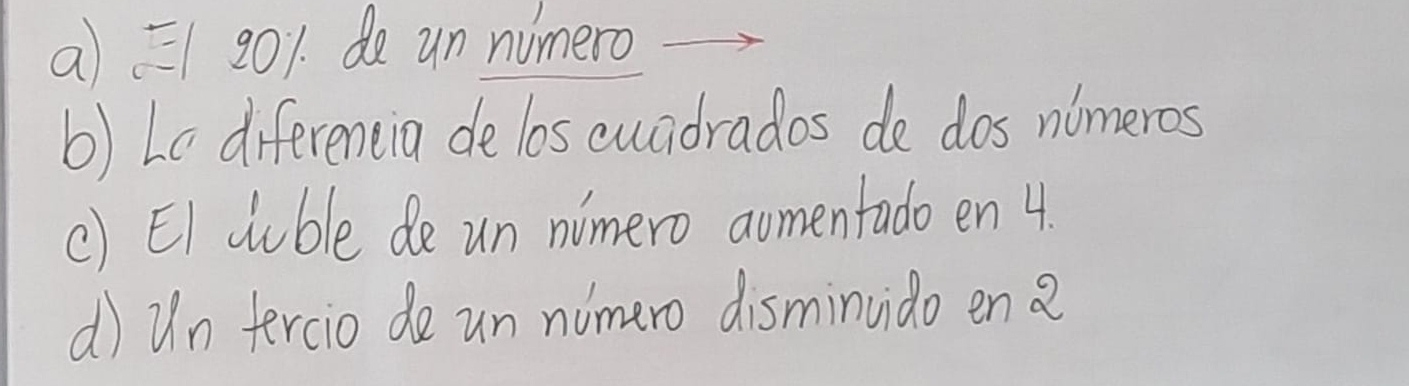 a) El 20% de un número →
b) La diferencia de los cuadrados de dos números
c) El doble de un número aumentado en 4.
d) Un tercio de un número disminuido en 2